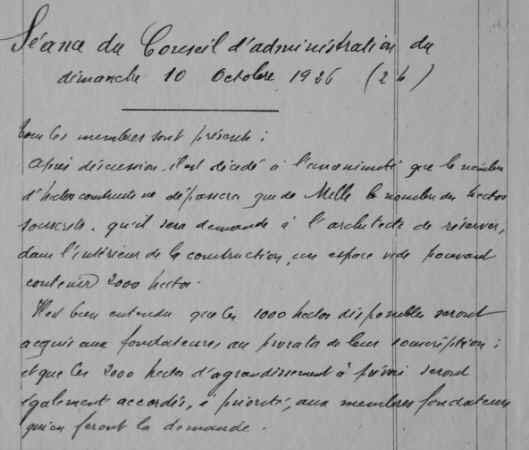 Séance du Conseil d'administration du
dimanche 10 Octobre 1926 (2 h)
tous les membres sont présents :
Après discussion, il est décidé à l'unanimité que le nombre
d'hectos construits ne dépassera que de Mille le nombre des hectos
souscrits, qu'il sera demandé à l'architecte de réserver,
dans l'intérieur de la construction, un espace vide pouvant
contenir 2000 hectos.
Il est bien entendu que les 1000 hectos disponibles seront
acquis aux fondateures au prorata de leur souscription ;
et que les 2000 hectos d'agrandissement à prévoir seront
également accordés, priorité, aux membres fondateurs
qui en feront la demande.